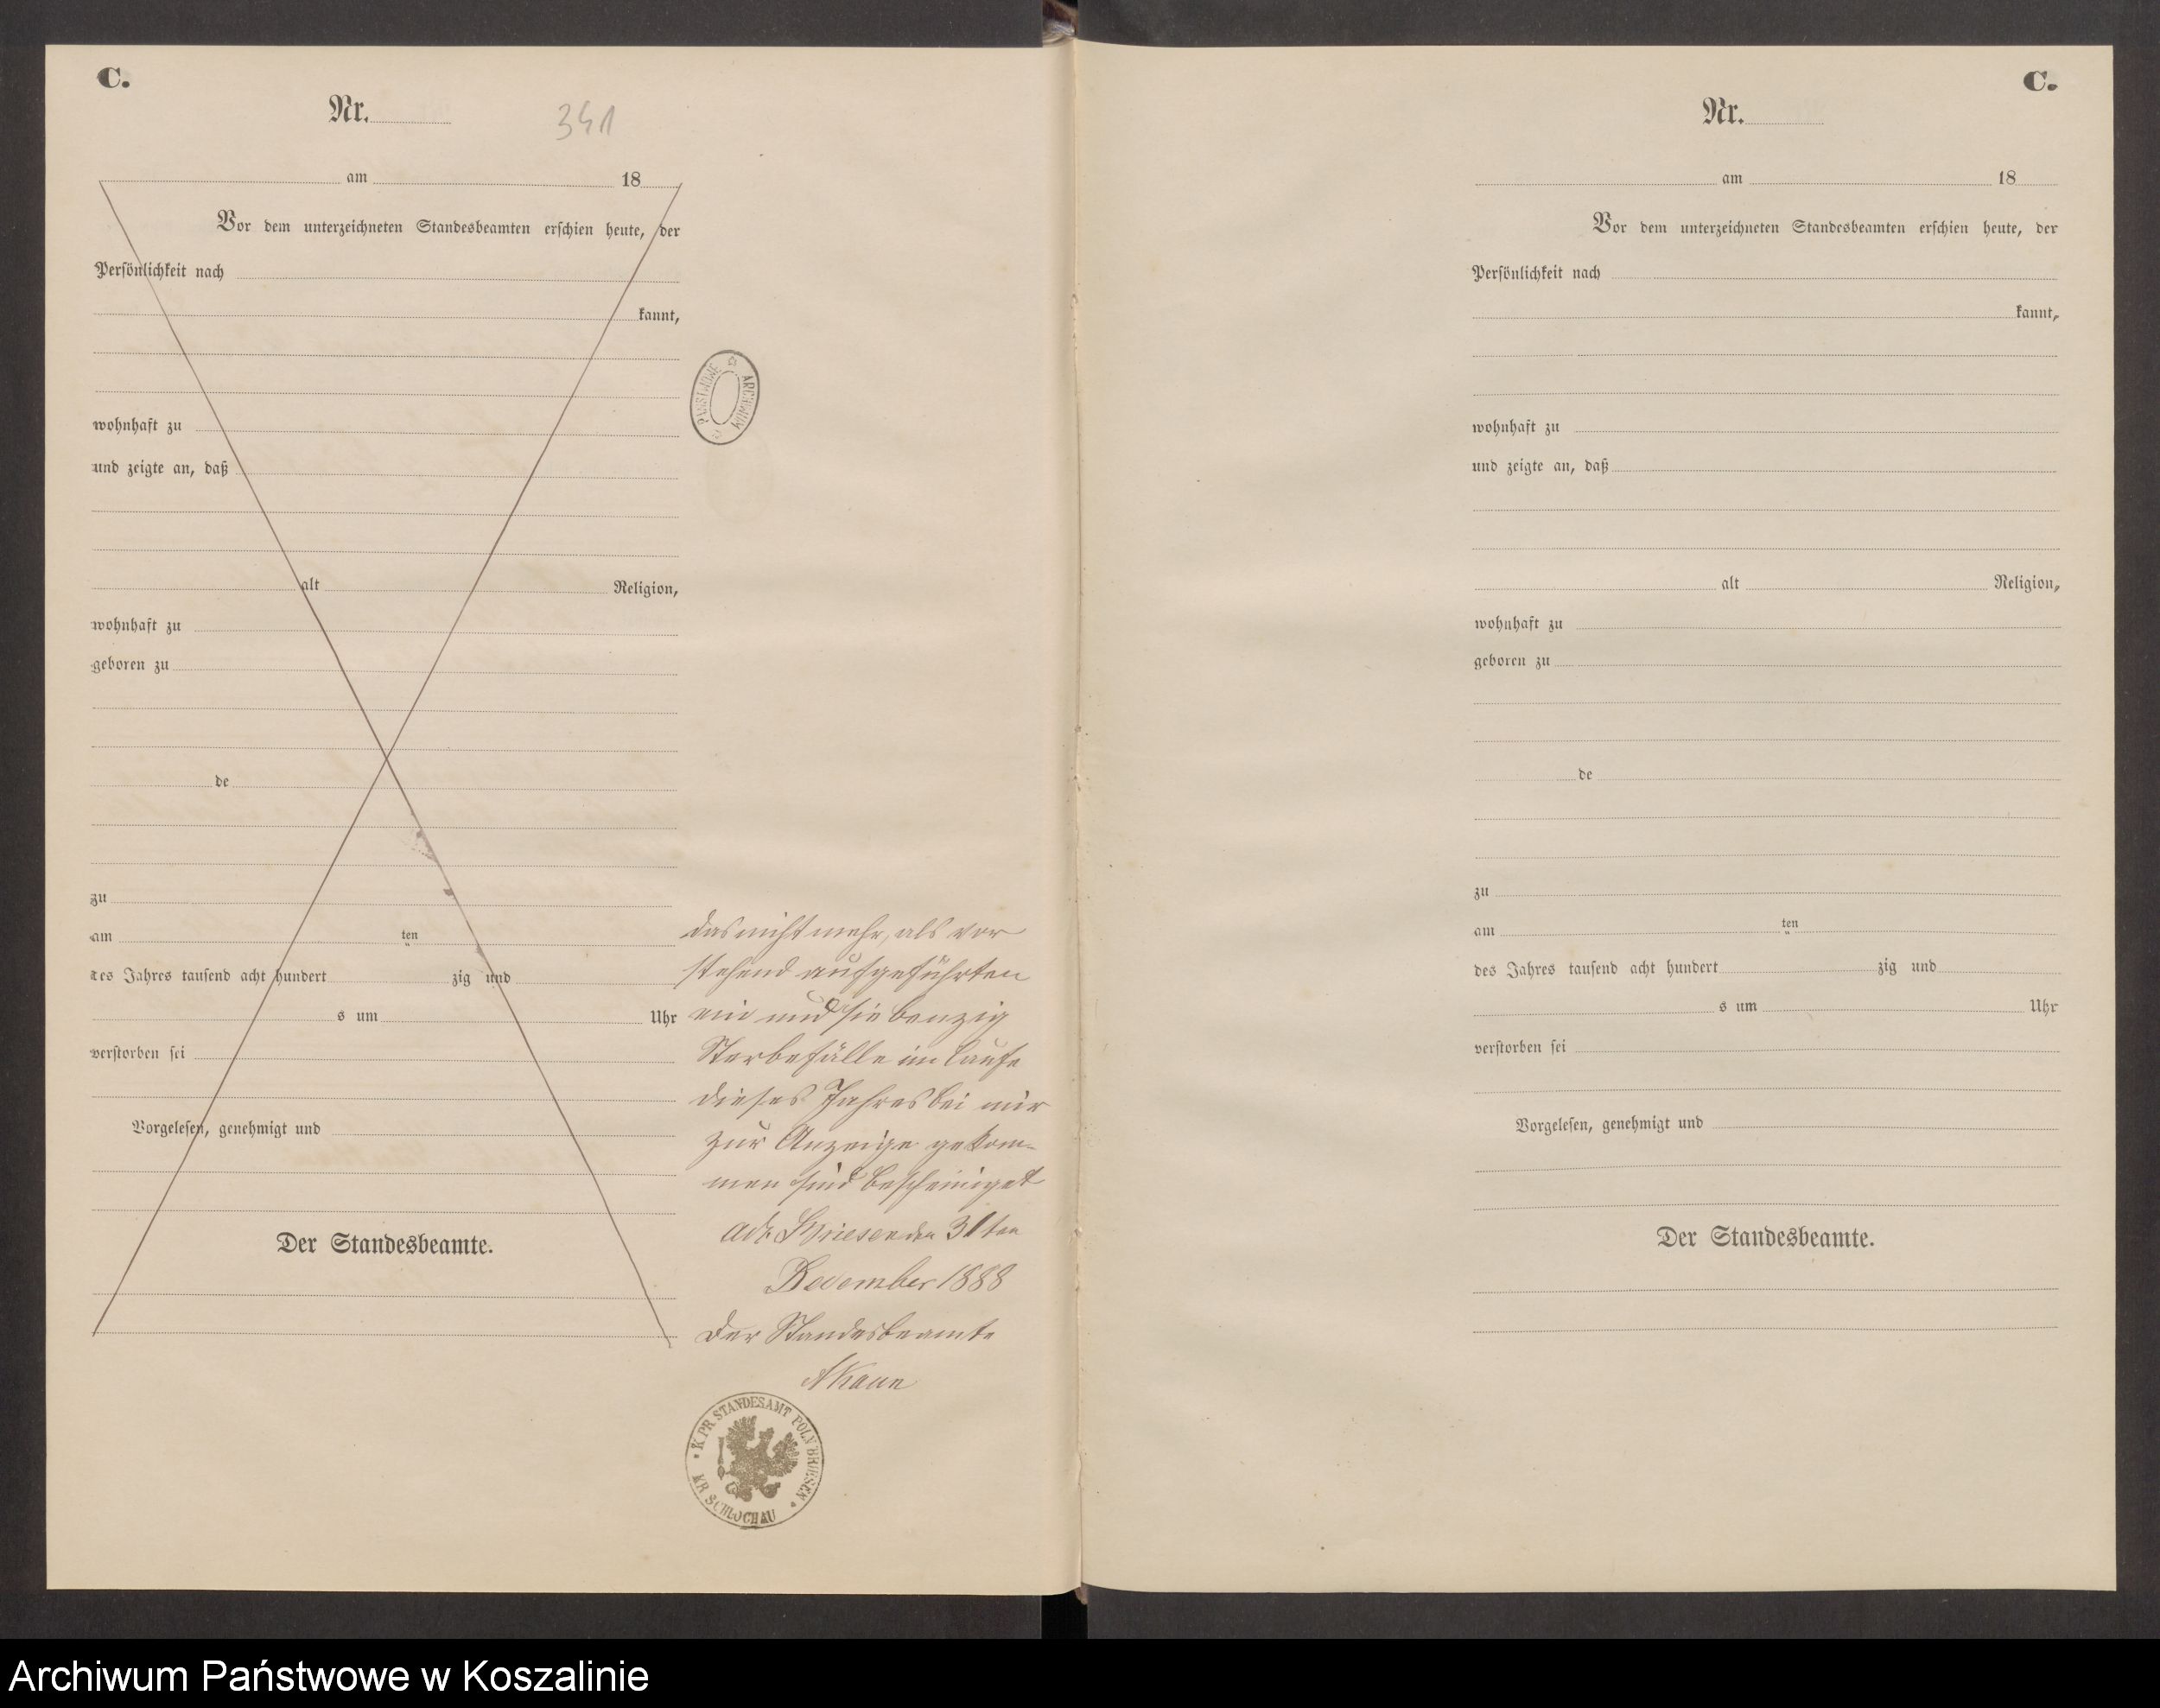 C.
Nr.
341
am 18
Vor dem unterzeichneten Standesbeamten erschien heute, der
Persönlichkeit nach
kannt,
wohnhaft zu
und zeigte an, daß
alt Religion,
wohnhaft zu
geboren zu
de
zu
am ten
des Jahres tausend acht hundert zig und
s um Uhr
verstorben sei
Vorgelesen, genehmigt und
Der Standesbeamte.
PAŃSTWOWE ARCHIWUM
das nicht mehr, als vor
stehend aufgeführten
ein und siebenzig
Sterbefälle im Laufe
dieses Jahres bei mir
zur Anzeige gekom-
men sind bescheiniget
Briesen den 31ten
December 1888
Der Standesbeamte
K. PR. STANDESAMT POLN BRIESEN
KR SCHLOCHAU
C.
Nr.
am 18
Vor dem unterzeichneten Standesbeamten erschien heute, der
Persönlichkeit nach
kannt,
wohnhaft zu
und zeigte an, daß
alt Religion,
wohnhaft zu
geboren zu
de
zu
am ten
des Jahres tausend acht hundert zig und
s um Uhr
verstorben sei
Vorgelesen, genehmigt und
Der Standesbeamte.
Archiwum Państwowe w Koszalinie